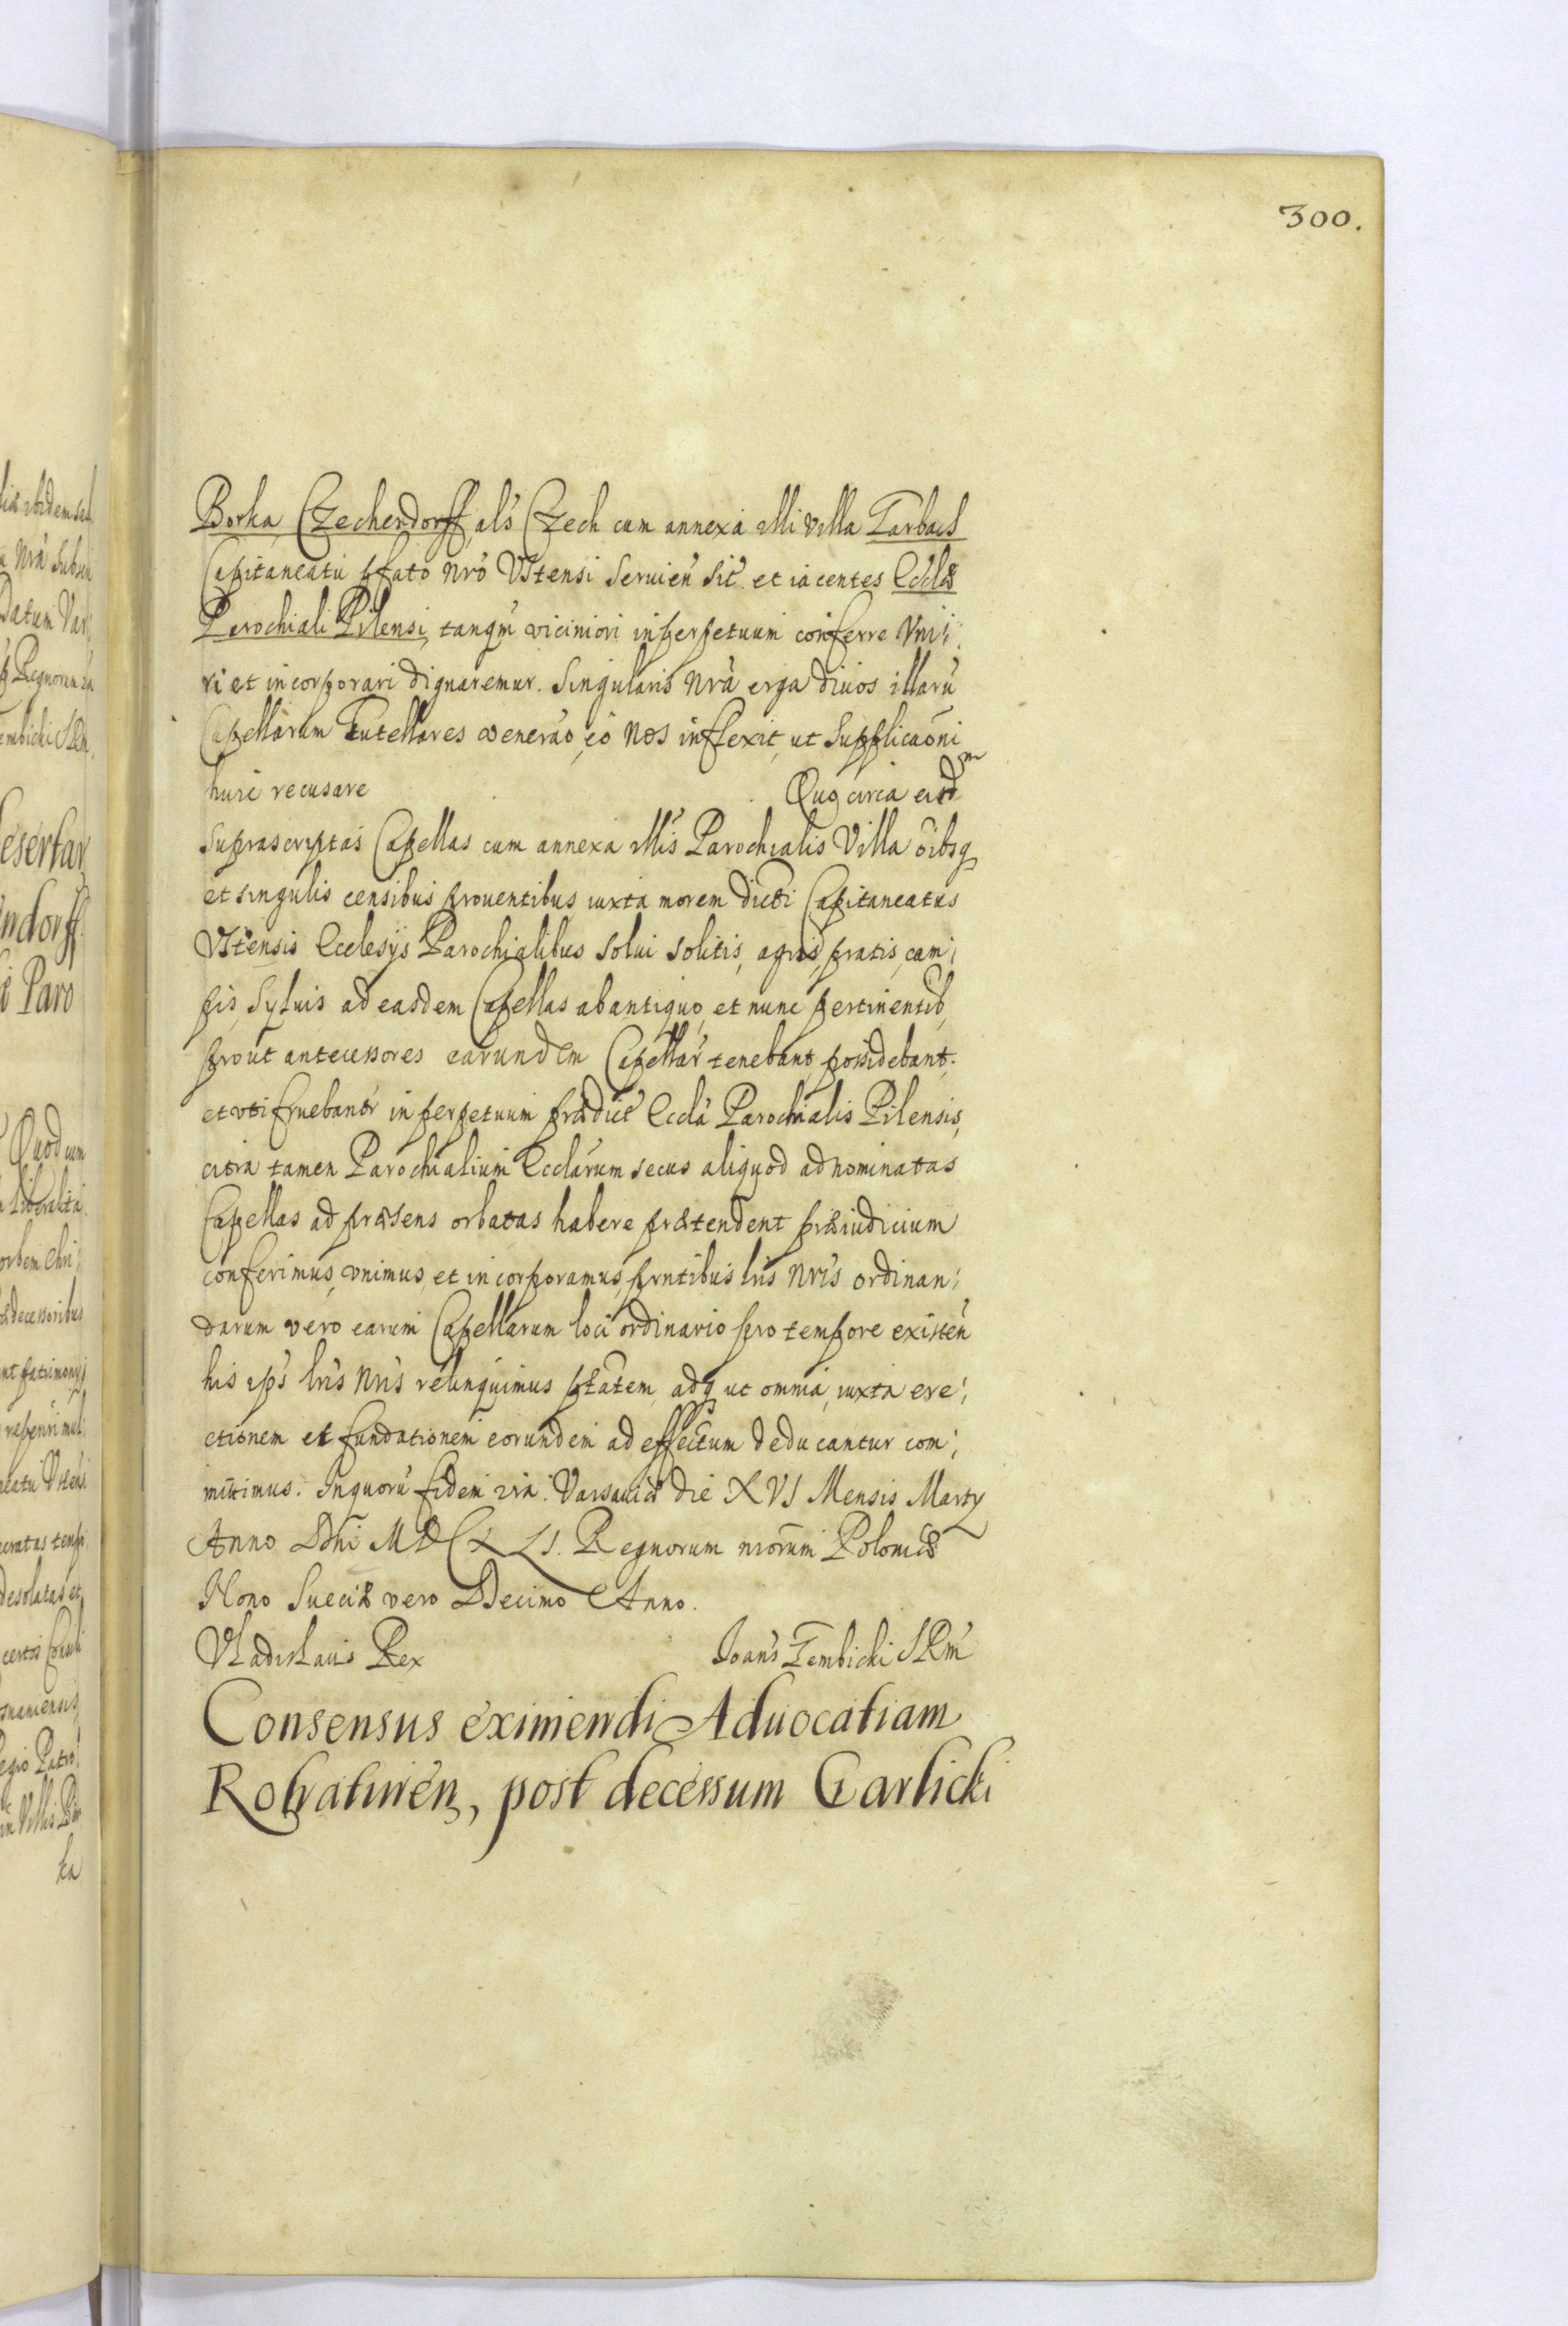 300.
Borka, Czechendorff, als Czech cum annexa illi villa Tarbach
Capitaneatu pfato nrō Vstensi seruien̄ sit. et iacentes Eccłæ
Parochiali Pilensi, tanqm̄ viciniori in perpetuum conferre Vni;
ri et incorporari dignaremur. Singularis nrā erga diuos illarū
Capellarum Tutellares venerāo, eō nos inflexit, ut Supplicaōni
huic recusare Quo circa eisdm
suprascriptas Capellas cum annexa illis Parochialis Villa oībsq
et singulis censibus prouentibus iuxta morem dicti Capitaneatus
Vstensis Ecclesijs Parochialibus solui solitis, agris, pratis, cam;
pis, syluis ad easdem Capellas ab antiquo, et nunc pertinentib,
prout antecessores earundem Capellar̄ tenebant, possidebant.
et vti fruebantr in perpetuum prædict Eccłā Parochialis Pilensis,
citra tamen Parochialium Eccłarum secus aliquod ad nominatas
Capellas ad præsens orbatas habere prætendent præiudicium
conferimus, vnimus, et incorporamus, prntibus lris nris ordinan;
darum vero earum Capellarum loci ordinario pro tempore existen̄
his ips lris nris relinquimus ptātem, adq ut omnia, iuxta ere;
ctionem et fundationem eorundem ad effectum deducantur com;
mittimus. In quorū fidem Varsauiæ die XVI Mensis Marty
Anno Dnī MDCXLI. Regnorum nrorum Poloniæ
Nono Sueciæ vero Decimo Anno.
Vladislaus Rex Ioans Łembicki SRm
Consensus eximendi Aduocatiam
Rohatinen, post decessum Garlicki